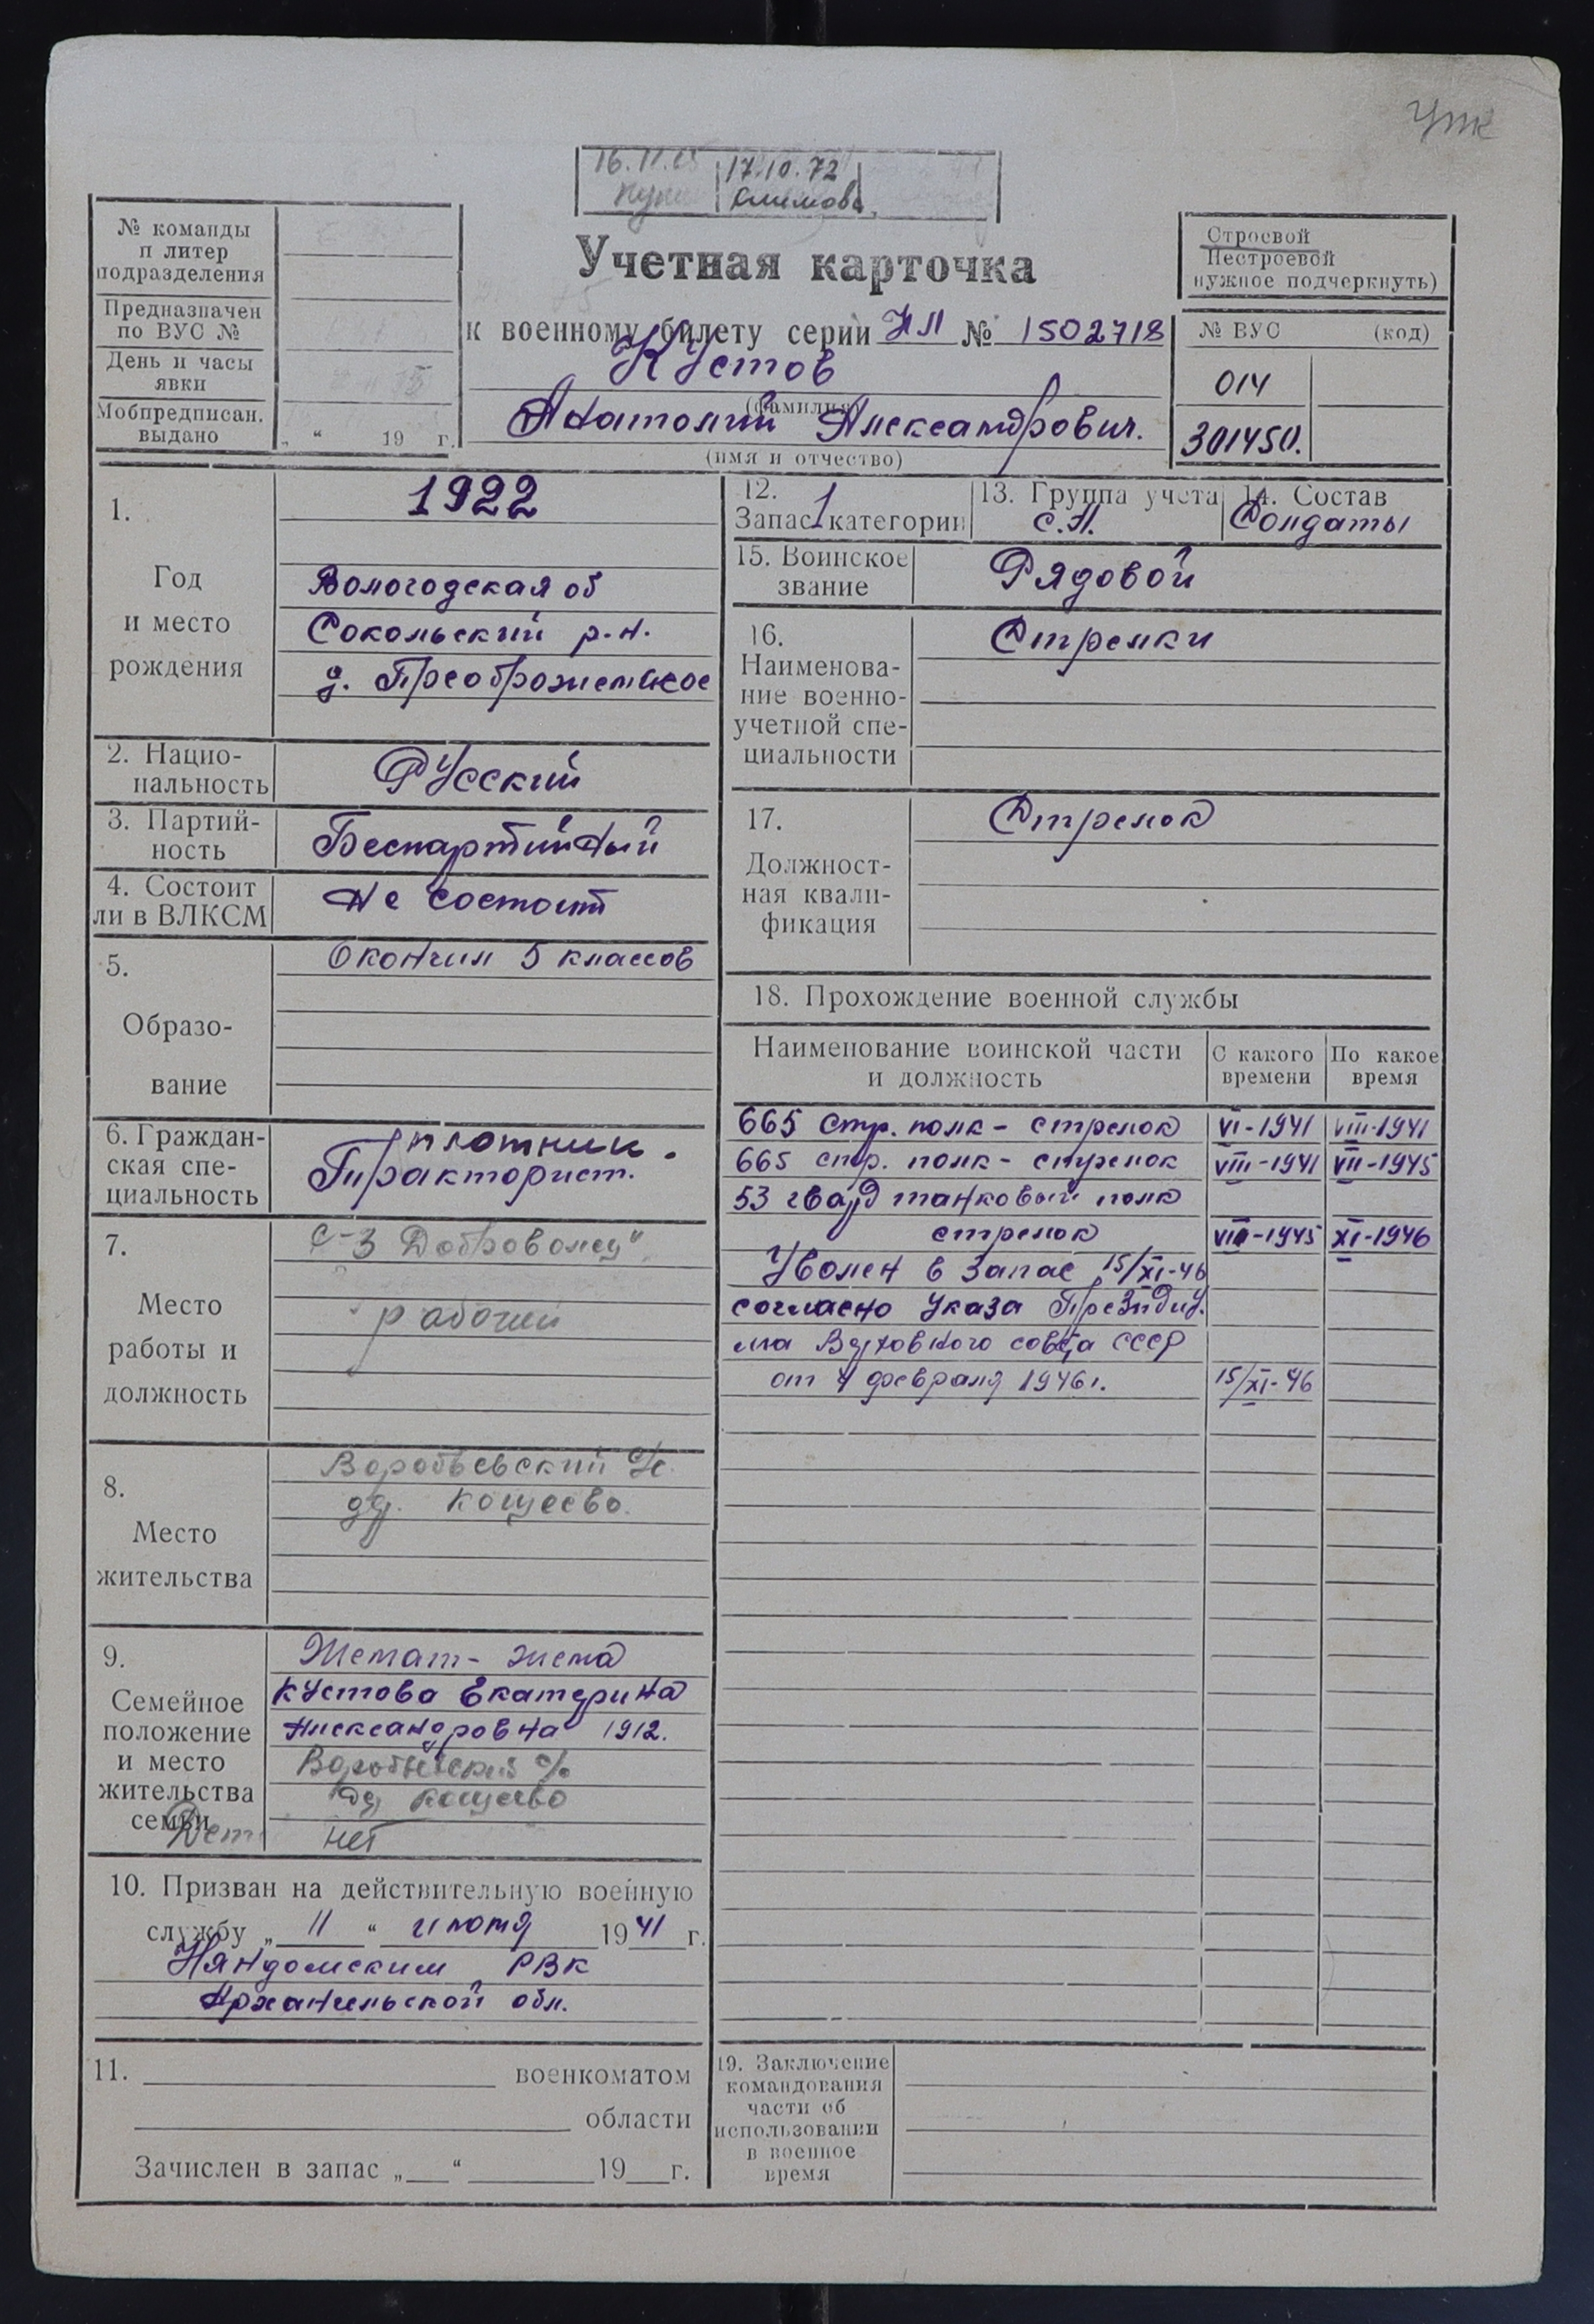 УПК
16.11.65 17.10.72
Климова
№ команды
и литер
подразделения
Предназначен
по ВУС №
День и часы
явки
Мобпредписан.
выдано
„ “ 19 г.
Учетная карточка
к военному билету серии НЛ № 1502718
Кустов
(фамилия)
Анатолий Александрович.
(имя и отчество)
Строевой
Нестроевой
нужное подчеркнуть)
№ ВУС (код)
014
301450.
1.
Год
и место
рождения
1922
Вологодская об
Сокольский р-н.
д. Преображенское
2. Нацио-
нальность
Русский
3. Партий-
ность
Беспартийный
4. Состоит
ли в ВЛКСМ
Не состоит
5.
Образо-
вание
Окончил 5 классов
6. Граждан-
ская спе-
циальность
плотник.
Тракторист.
7.
Место
работы и
должность
С-з Доброволец"
рабочий
8.
Место
жительства
Воробьевский с/с.
д. Кощеево.
9.
Семейное
положение
и место
жительства
семьи
Женат - жена
Кустова Екатерина
Александровна 1912.
Воробьевский с/с
д. Кощеево
Дети нет
10. Призван на действительную военную
службу „ 11 “ июня 1941 г.
Няндомским РВК
Архангельской обл.
11. военкоматом
области
Зачислен в запас „ “ 19 г.
12.
Запас 1 категории
13. Группа учета
С.А.
14. Состав
Солдаты
15. Воинское
звание
Рядовой
16.
Наименова-
ние военно-
учетной спе-
циальности
Стрелки
17.
Должност-
ная квали-
фикация
Стрелок
18. Прохождение военной службы
Наименование воинской части
и должность
С какого
времени
По какое
время
665 стр. полк - стрелок VI-1941 VIII-1941
665 стр. полк - стрелок VIII-1941 VII-1945
53 гвард танковый полк
стрелок VIII-1945 XI-1946
Уволен в запас 15/XI-46
согласно Указа Президиу-
ма Верховного совета СССР
от 4 февраля 1946г. 15/XI-46
19. Заключение
командования
части об
использовании
в военное
время